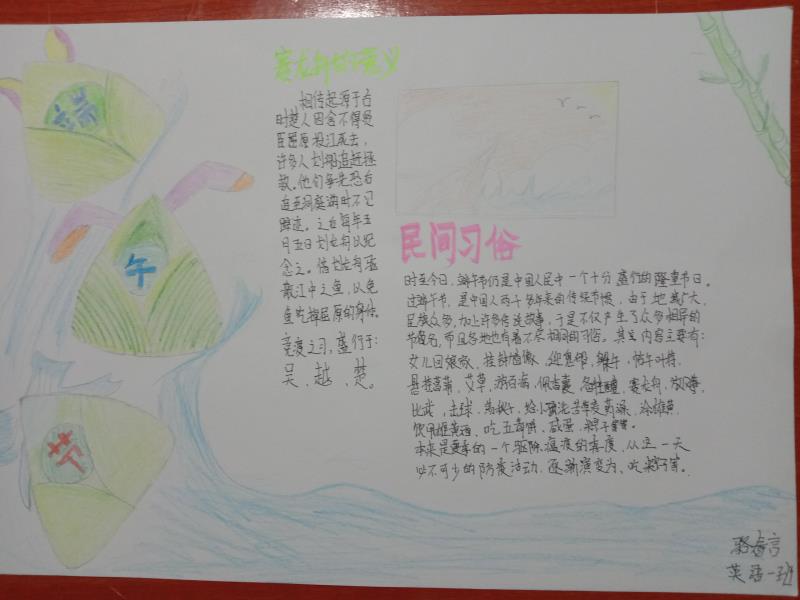 端
午
节
赛龙舟的意义
相传起源于古
时楚人因舍不得贤
臣屈原投江死去，
许多人划船追赶拯
救。他们争先恐后
追至洞庭湖时不见
踪迹。之后每年五
月五日划龙舟以纪
念之。借划龙舟驱
散江中之鱼，以免
鱼吃掉屈原的身体。
竞渡之习，盛行于：
吴、越、楚。
民间习俗
时至今日，端午节仍是中国人民中一个十分盛行的隆重节日。
过端午节，是中国人两千多年来的传统节惯，由于地域广大，
民族众多，加上许多传说故事，于是不仅产生了众多相异的
节目名，而且各地也有着不尽相同的习俗。其主内容主要有：
女儿回娘家，挂钟馗像，迎鬼船、躲午，帖午叶符，
悬挂菖蒲、艾草，游百病，佩香囊，备牲醴，赛龙舟，
比武，击球，荡秋千，给小孩涂雄黄，
饮用雄黄酒、吃五毒饼、咸蛋、粽子等。
本来是夏季的一个驱除瘟疫的 从这一天
必不可少的防疫活动，逐渐演变为、吃粽子等。
英语一班